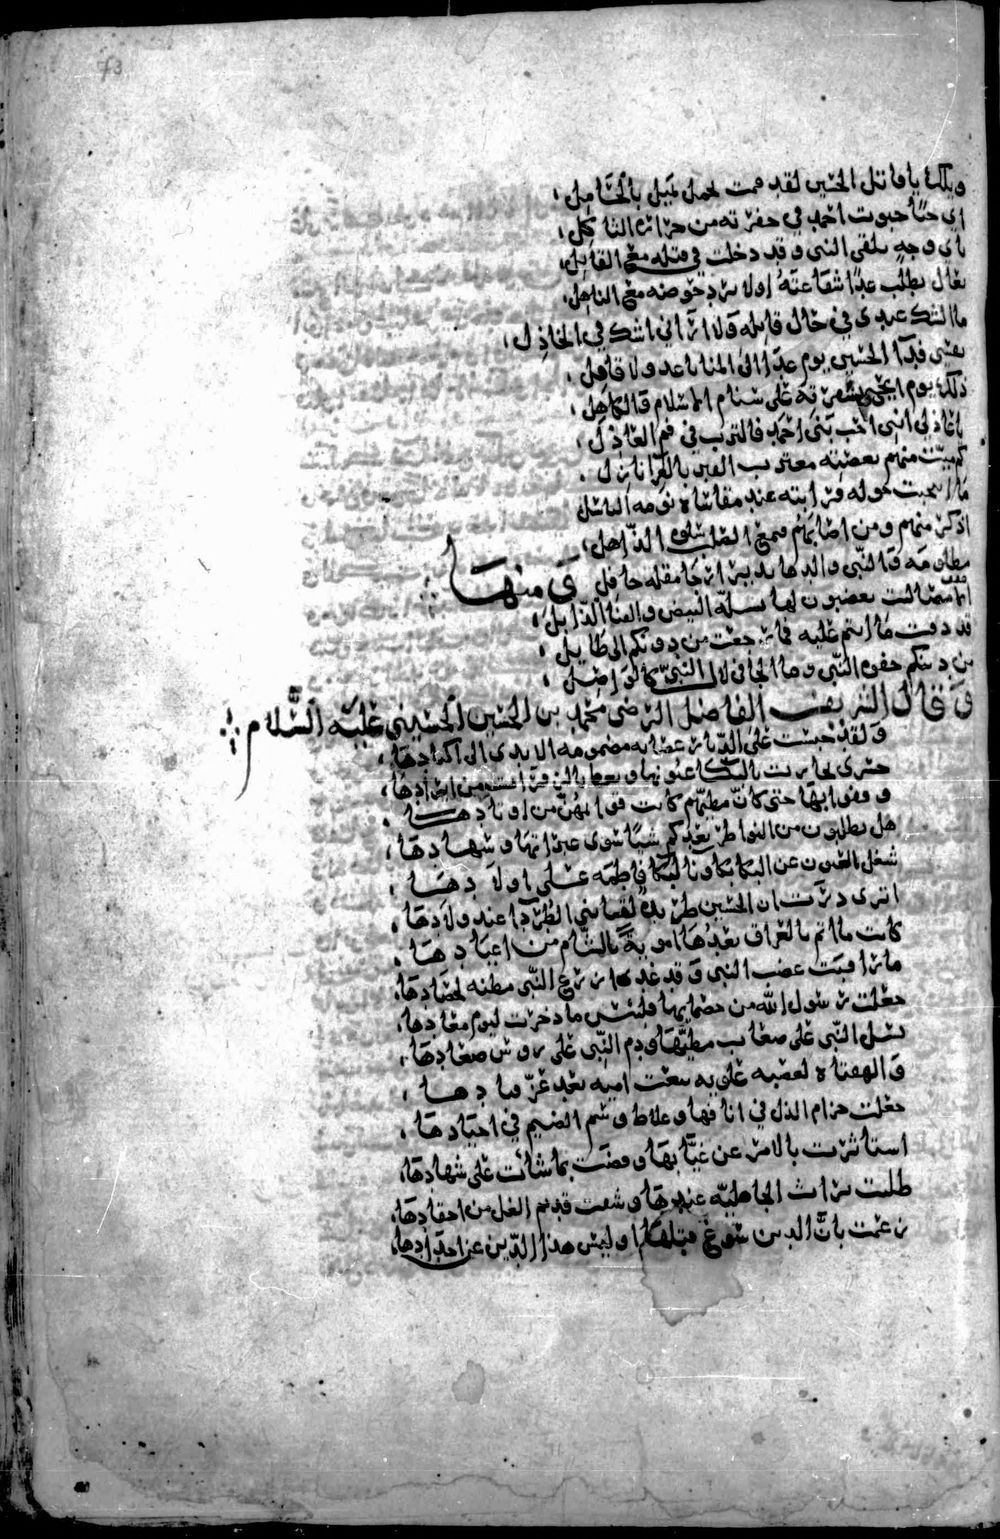 73
ويلك يا قاتل الحسين لقد قمت بحمل يميل بالحامل
اي حبا حبوت احمد في حفرته من حرارة الثاكل
باي وجه تلقى النبي وقد دخلت في قتله مع القاتل
تعال فاطلب غدا شفاعته اولا ترد حوضه مع الناهل
ما الشك عندي في حال قاتله لاكنني اشك في الخاذل
نفسي فدا الحسين يوم غدا الى المنايا غدو لا قافل
ذلك يوم انحى بشفرته على سنام الاسلام والكاهل
يا عاذلي انني احب بني احمد فالترب في فم العاذل
كم ميت منهم بغصته مغترب القبر بالعرا نازل
ما انتحبت حوله قرابته عند مقاساة يومه الباسل
اذكر منهم ومن اصابهم فيمنع القلب سلوة الذاهل
مظلومة والنبي والدها تدير ارجا مقلة حافل
ومنها
الا مصاليت يغضبون لها بسلة البيض والقنا الذابل
قد دنت ما انتم عليه فما رجعت من دونكم الى طايل
من دينكم جفوة النبي وما الجافي لال النبي كالواصل
وقال الشريف الفاضل الرضي محمد بن الحسين الحسيني عليه السلام
ولقد حبست على الديار عصابة مضمومة الايدي الى اكبادها
حسرى تجاوب بالبكا عيونها وتعط بالزفرات من ابرادها
وقفوا بها حتى كان مطيهم كانت قوائمهن من اوتادها
هل تطلبون من النواظر بعدكم شيئا سوى عبراتها وسهادها
شغل العيون عن البكا بكاونا لبكا فاطمة على اولادها
اترى درت ان الحسين طريدة لقنا بني الطردا عند ولادها
كانت ماتم بالعراق تعدها اموية بالشام من اعيادها
ما راقبت غضب النبي وقد غدا زرع النبي مظنة لحصادها
جعلت رسول الله من خصمائها فلبئس ما دخرت ليوم معادها
نسل النبي على صعاب مطيها ودم النبي على روس صعادها
والهفتاه لعصبة علوية تبعت امية بعد عز قيادها
جعلت حزام الذل في انافها وعلاط وسم الضيم في اجيادها
استاثرت بالامر عن غيابها وقضت بما شائت على شهادها
طلبت تراث الجاهلية عندها وشفت قديم الغل من احقادها
زعمت بان الدين سوغ قتلها اوليس هذا الدين عن اجدادها